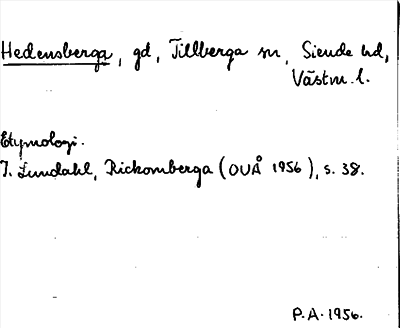 Hedensberga, gd, Tillberga sn, Siende hd,
Västm. l.
Etymologi.
I. Lundahl, Rickomberga (OUÅ 1956), s. 38.
P.A. 1956.